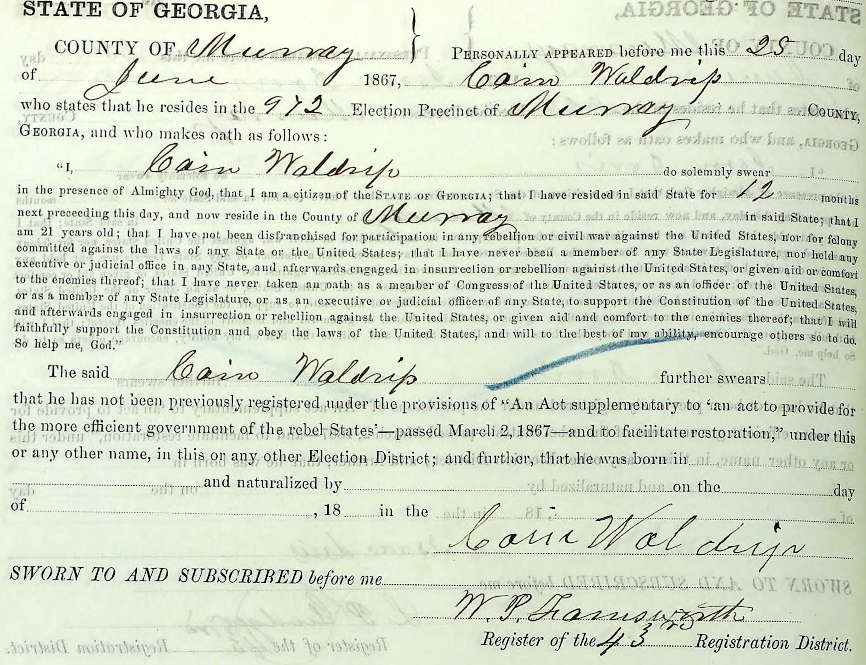 STATE OF GEORGIA,
COUNTY OF Murray } PERSONALLY APPEARED before me this 28 day
of June 1867, Cain Waldrip
who states that he resides in the 972 Election Precinct of Murray COUNTY,
GEORGIA, and who makes oath as follows:
"I, Cain Waldrip do solemnly swear
in the presence of Almighty God, that I am a citizen of the STATE OF GEORGIA; that I have resided in said State for 12 months
next preceding this day, and now reside in the County of Murray in said State; that I
am 21 years old; that I have not been disfranchised for participation in any rebellion or civil war against the United States, nor for felony
committed against the laws of any State or the United States; that I have never been a member of any State Legislature, nor held any
executive or judicial office in any State, and afterwards engaged in insurrection or rebellion against the United States, or given aid or comfort
to the enemies thereof; that I have never taken an oath as a member of Congress of the United States, or as an officer of the United States,
or as a member of any State Legislature, or as an executive or judicial officer of any State, to support the Constitution of the United States,
and afterwards engaged in insurrection or rebellion against the United States, or given aid and comfort to the enemies thereof; that I will
faithfully support the Constitution and obey the laws of the United States, and will to the best of my ability, encourage others so to do.
So help me, God."
The said Cain Waldrip further swears
that he has not been previously registered under the provisions of "An Act supplementary to 'an act to provide for
the more efficient government of the rebel States'—passed March 2, 1867—and to facilitate restoration," under this
or any other name, in this or any other Election District; and further, that he was born in
and naturalized by on the day
of , 18 in the
Cain Waldrip
SWORN TO AND SUBSCRIBED before me
W. P. Farnsworth
Register of the 43rd Registration District.